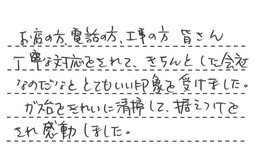 お店の方、電話の方、工事の方 皆さん
丁寧な対応をされて、きちんとした会社
なのだなととてもいい印象を受けました。
ガス台をきれいに清掃して、据えつけを
され感動しました。